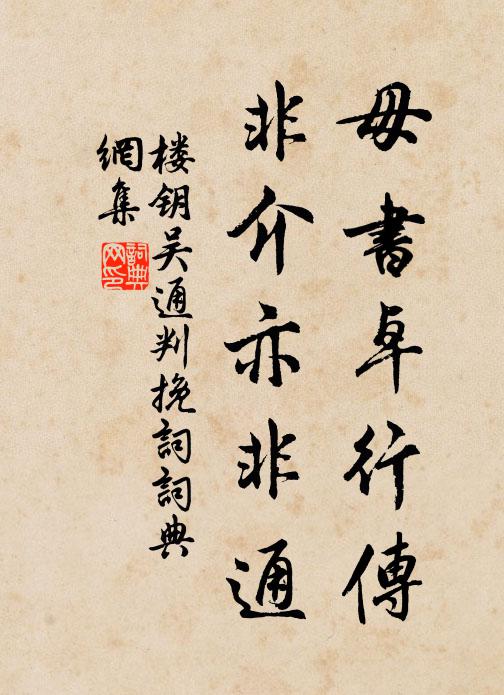 毋書卓行傳
非介亦非通
楼钥吴通判挽詞詞典
網集
詞典
网印